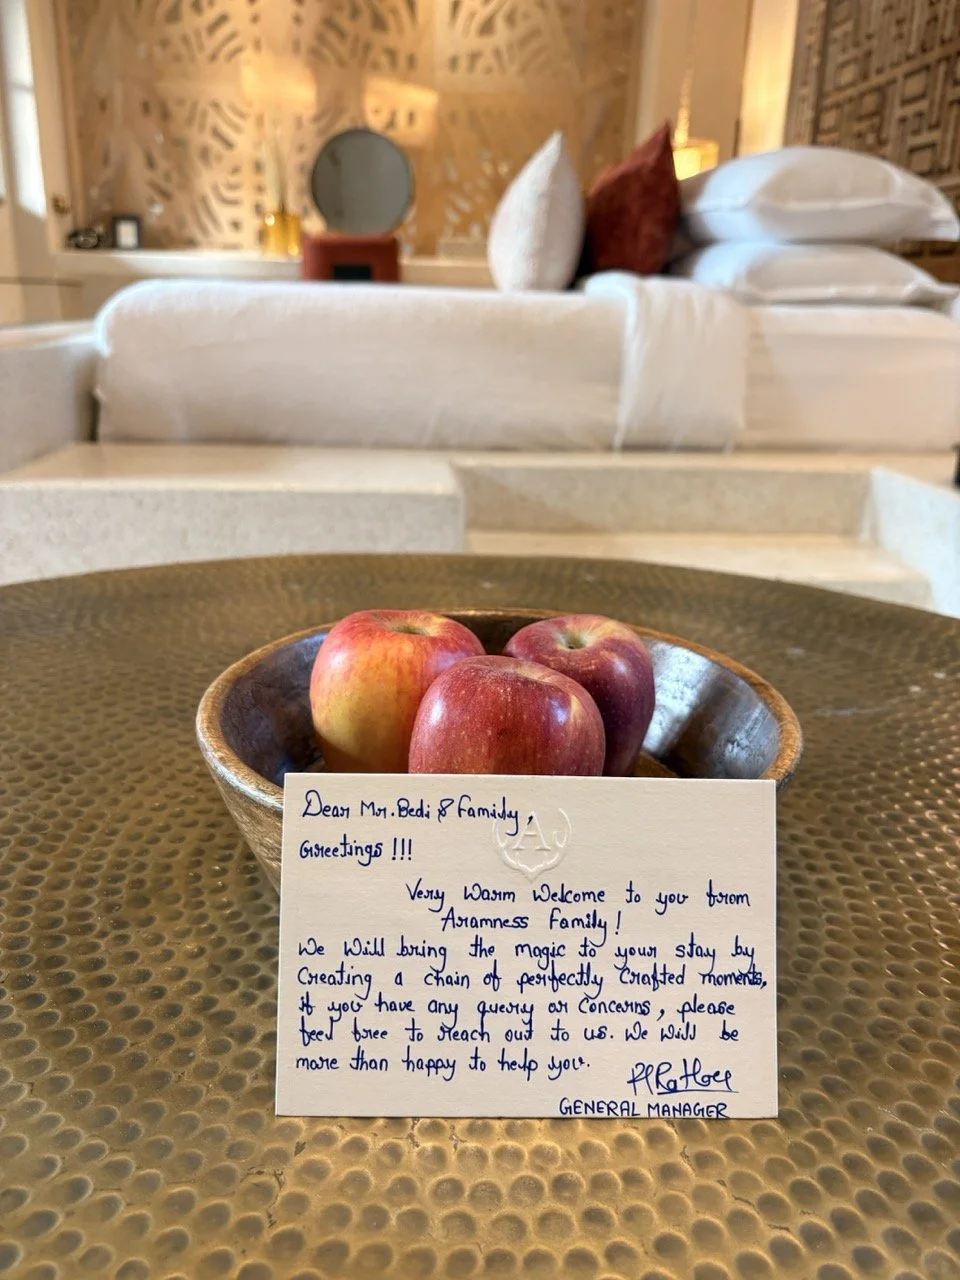 Dear Mr. Bedi & Family,
A
Greetings !!!
Very Warm Welcome to you from
Aramness Family!
We Will bring the magic to your stay by
Creating a chain of perfectly Crafted moments,
if you have any query or Concerns, please
feel free to reach out to us. We Will be
more than happy to help you.
GENERAL MANAGER